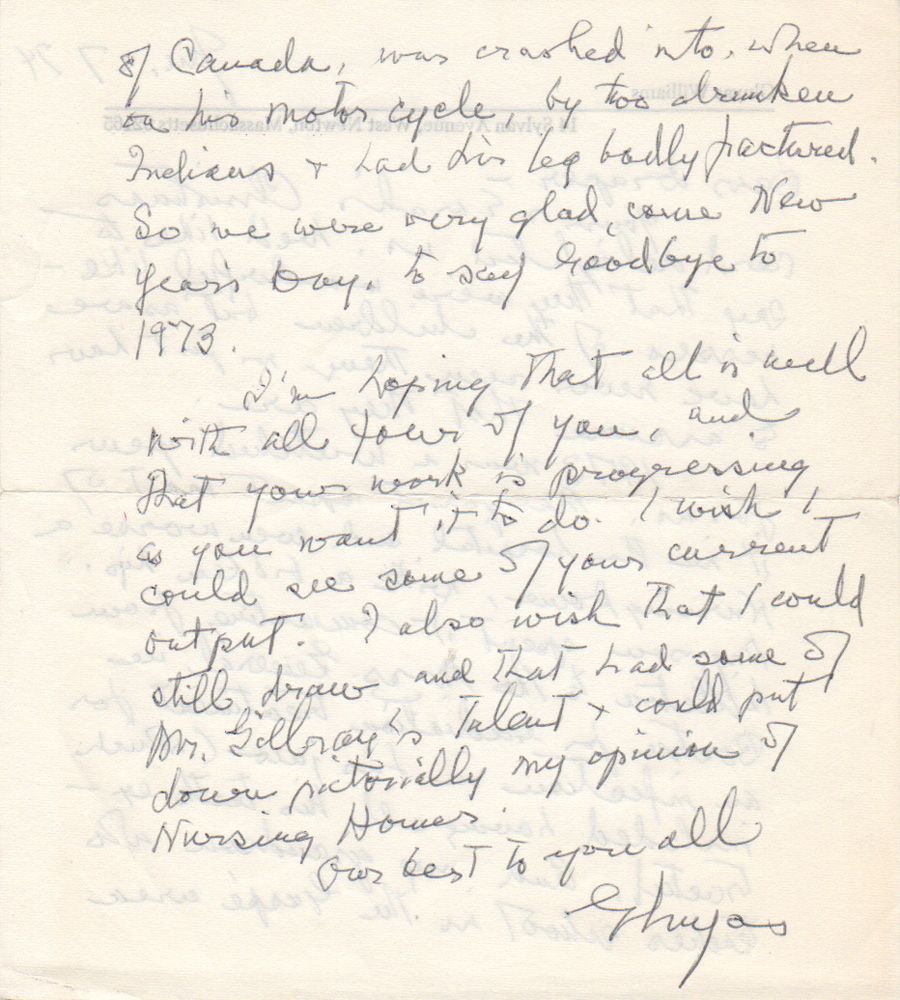 of Canada, was crashed into, when
on his motor cycle, by two drunken
Indians + had his leg badly fractured.
So we were very glad, come New
Years Day, to say Goodbye to
1973.
I'm hoping that all is well
with all four of you, and
that your work is progressing
as you want it to do. I wish I
could see some of your current
output. I also wish that I could
still draw and that had some of
Mr. Gillray's talent + could put
down pictorially my opinion of
Nursing Homes.
Our best to you all